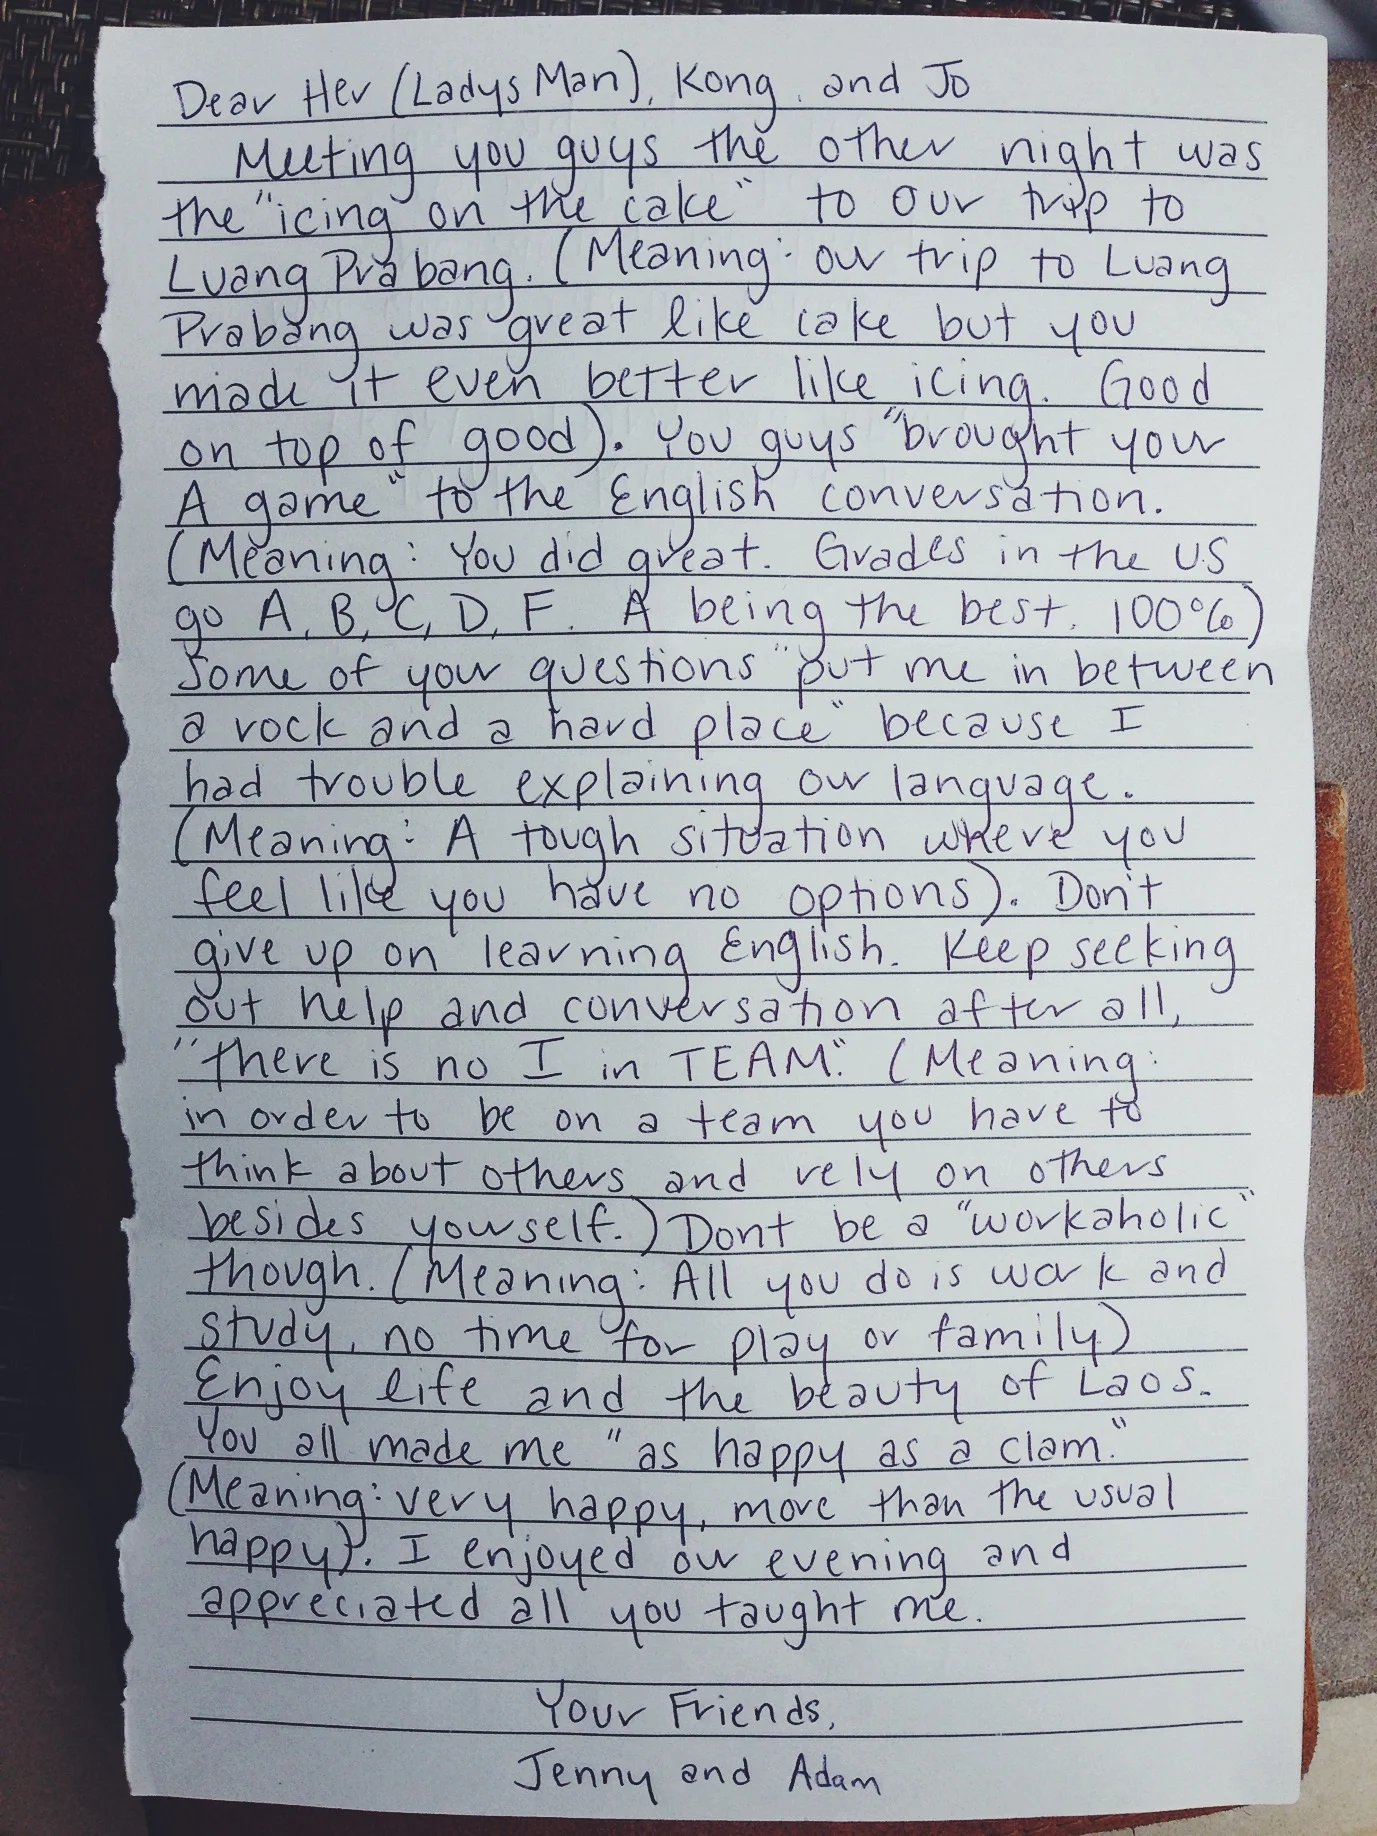 Dear Her (Ladys Man), Kong, and Jo
Meeting you guys the other night was
the "icing on the cake" to our trip to
Luang Prabang. (Meaning: our trip to Luang
Prabang was great like cake but you
made it even better like icing. Good
on top of good). You guys "brought your
A game" to the English conversation.
(Meaning: You did great. Grades in the US
go A, B, C, D, F. A being the best. 100%)
Some of your questions "put me in between
a rock and a hard place" because I
had trouble explaining our language.
(Meaning: A tough situation where you
feel like you have no options). Don't
give up on learning English. Keep seeking
out help and conversation after all,
"there is no I in TEAM." (Meaning:
in order to be on a team you have to
think about others and rely on others
besides yourself.) Dont be a "workaholic"
though. (Meaning: All you do is work and
study, no time for play or family)
Enjoy life and the beauty of Laos.
You all made me "as happy as a clam."
(Meaning: very happy, more than the usual
happy). I enjoyed our evening and
appreciated all you taught me.
Your Friends,
Jenny and Adam